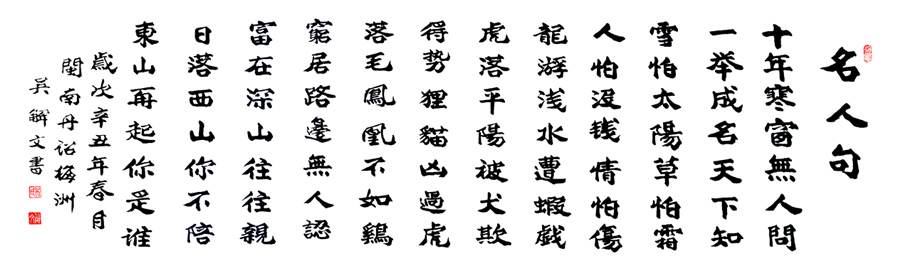 名人句
十年寒窗無人問
一举成名天下知
雪怕太陽草怕霜
人怕没钱情怕傷
龍游浅水遭蝦戯
虎落平陽被犬欺
得势狸貓凶過虎
落毛鳳凰不如鷄
窮居路邊無人認
富在深山往往親
日落西山你不陪
東山再起你是谁
歲次辛丑年春月
閩南丹诏梅洲
吴觧文書